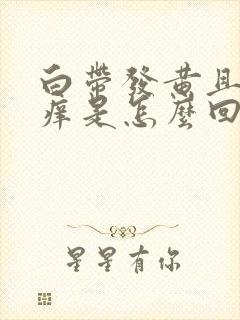 白带發黄且
痒是怎麼回
星星有你